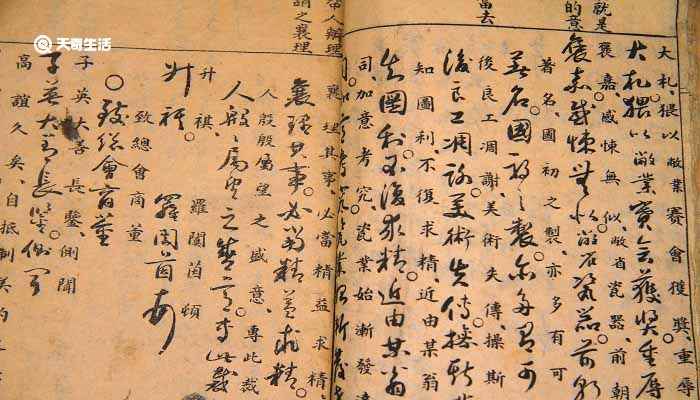 天奇生活
就是
的意
當去
大札猥以敝業賽會獲獎重辱
大札猥以敝業賽會獲獎重辱
褒嘉感悚無似敝省瓷器前朝
褒嘉感悚無似敝省瓷器前朝
著名國初之製亦多有可
著名國初之製亦多有可
後良工凋謝美術失傳操斯
後良工凋謝美術失傳操斯
知圖利不復求精近由某翁
知圖利不復求精近由某翁
司加意考究瓷業始漸發達
人辦理
謂之襄理
襄理其事必當精益求精
襄理其事必當精益求精
人殷殷屬望之盛意專此裁
人殷殷屬望之盛意專此裁
升祺 羅閩茵頓
升祺 羅閩茵頓
致總會商董
致總會商董
子英大善長鑒側聞
子英大善長鑒側聞
高誼久矣自抵制美約